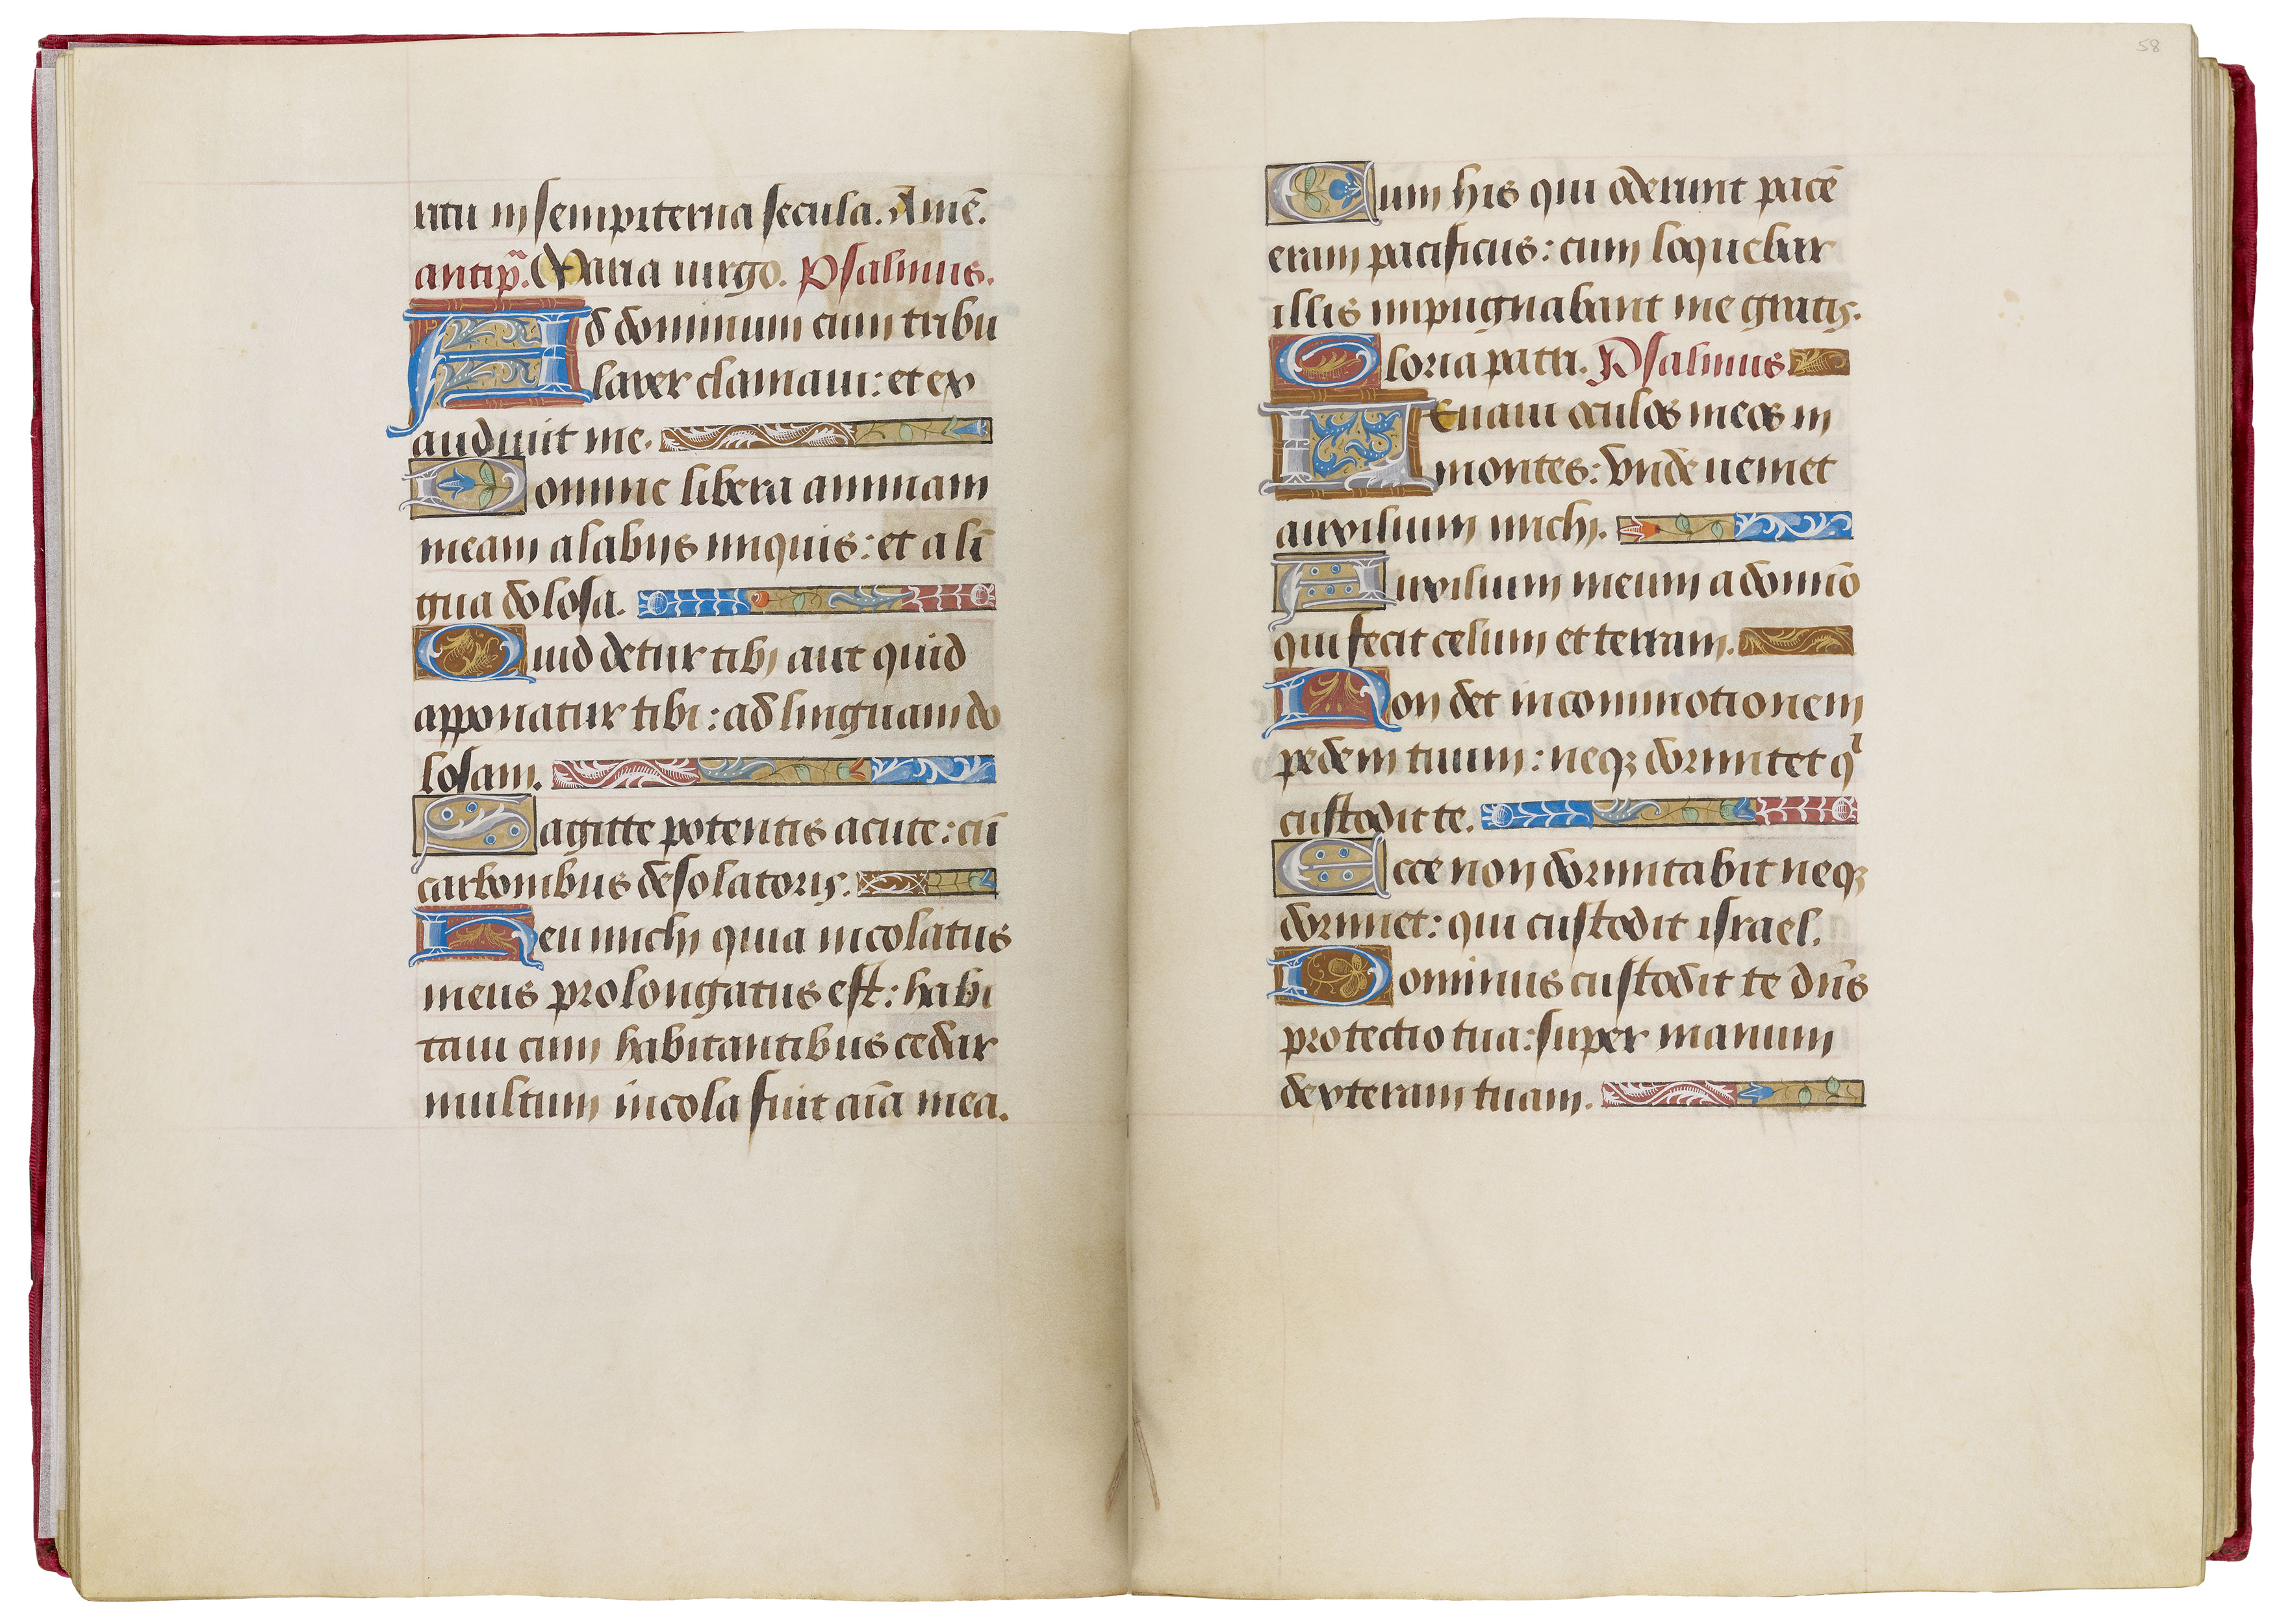 ritu in sempiterna secula. Amē.
antip̄. Maria uirgo. Psalmus.
Ad dominum cum tribu
larer clamaui: et ex
audiuit me.
Domine libera animam
meam a labijs iniquis: et a lī
gua dolosa.
Quid detur tibi aut quid
apponatur tibi: ad linguam do
losam.
Sagitte potentis acute: cū
carbonibus desolatorijs.
Heu michi quia incolatus
meus prolongatus est: habi
taui cum habitantibus cedar
multum incola fuit aīa mea.
58
Cum his qui oderunt pacē
eram pacificus: cum loquebar
illis inpugnabant me gratis.
Gloria patri. Psalmus
LEuaui oculos meos in
montes: vnde ueniet
auxilium michi.
Auxilium meum a domīo
qui fecit celum et terram.
Non det in commotionem
pedem tuum: neqꝫ dormitet qͥ
custodit te.
Ecce non dormitabit neqꝫ
dormiet: qui custodit israel.
Dominus custodit te dn̄s
protectio tua: super manum
dexteram tuam.